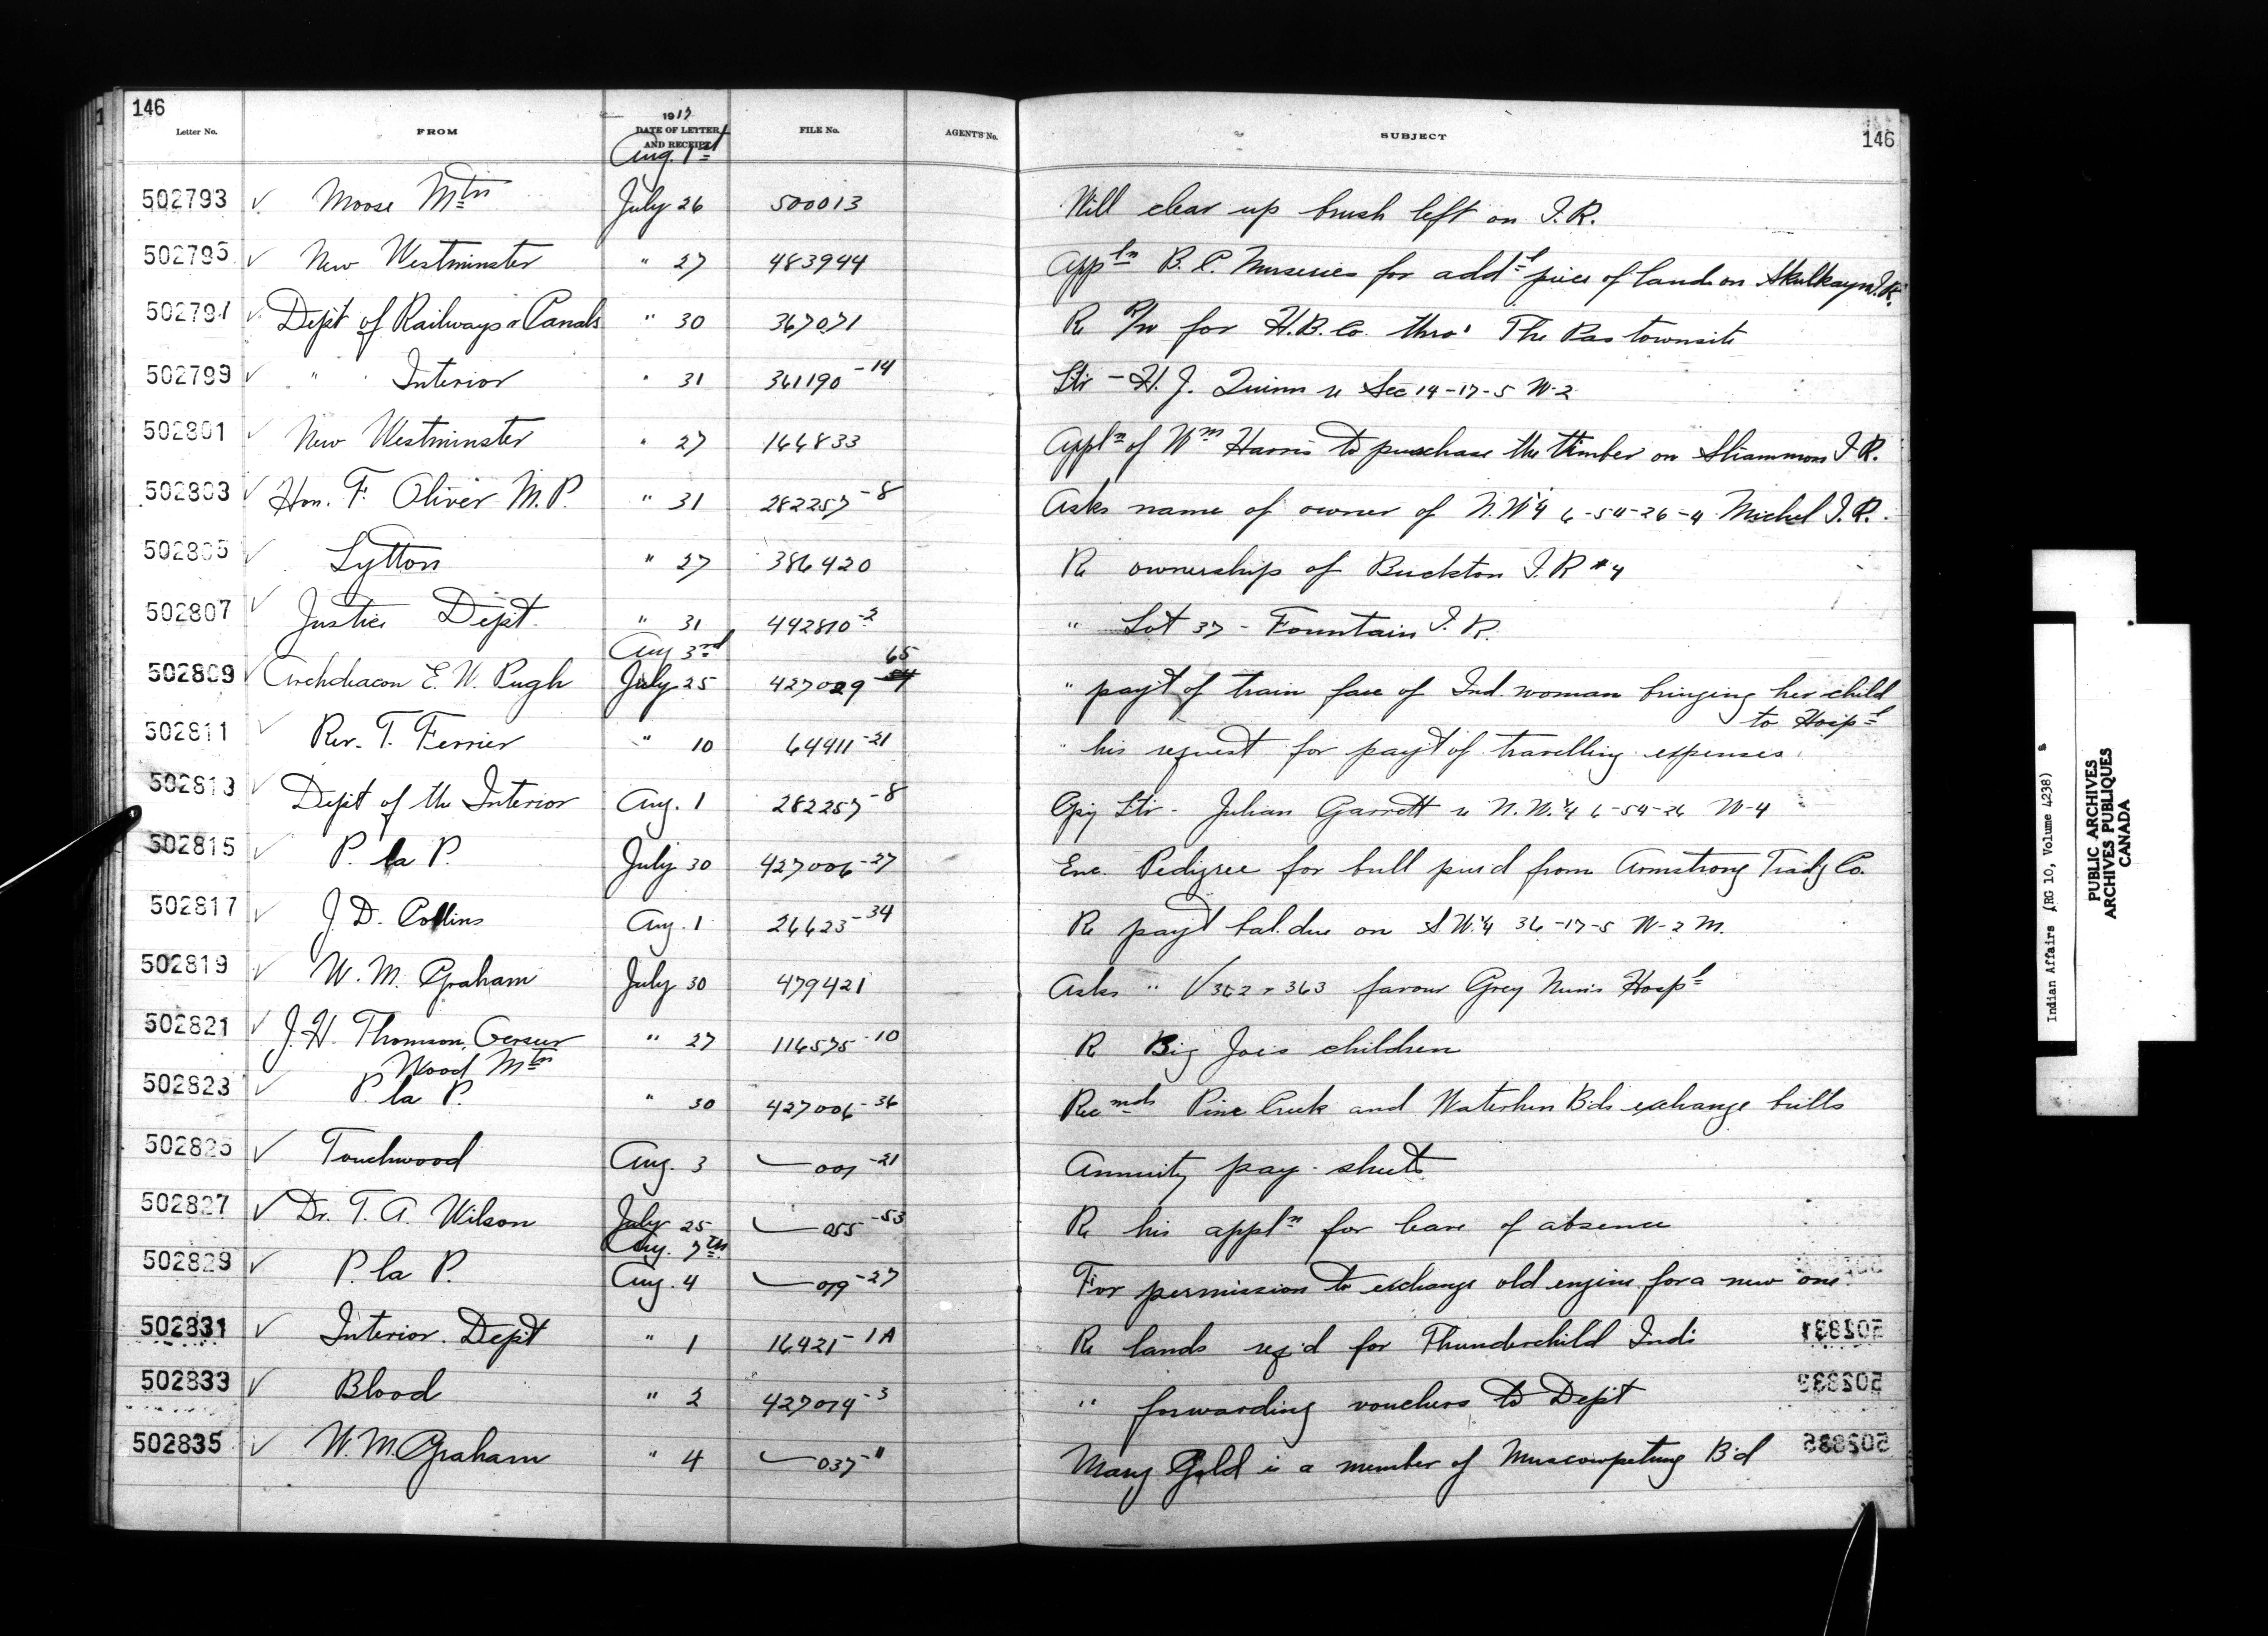 146
Letter No. FROM 1917 DATE OF LETTER AND RECEIPT FILE No. AGENT'S No. SUBJECT 146
Aug. 1st
502793 ✓ Moose Mtn July 26 500013 Will clear up brush left on I.R.
502795 ✓ New Westminster " 27 483944 Appln B.C. Nurseries for addl piece of land on Skulkayn I.R.
502797 ✓ Dept of Railways & Canals " 30 367071 Re R/W for H.B. Co. thro' The Pas townsite
502799 ✓ " Interior " 31 361190-14 Ltr - H. J. Quinn re Sec 14-17-5 W-2
502801 ✓ New Westminster " 27 164833 Appln of Wm Harris to purchase the timber on Sliammon I.R.
502803 ✓ Hon. F. Oliver M.P. " 31 282257-8 Asks name of owner of N.W¼ 6-54-26-4 Michel I.R.
502805 ✓ Lytton " 27 386420 Re ownership of Buckton I.R #4
502807 ✓ Justice Dept. " 31 442810-2 " Lot 37 - Fountain I.R.
Aug 3rd
65
502809 ✓ Archdeacon E. W. Pugh July 25 427029 " payt of train fare of Ind. woman bringing her child
to Hospl
502811 ✓ Rev. T. Ferrier " 10 64911-21 " his request for payt of travelling expenses
502813 ✓ Dept of the Interior Aug. 1 282257-8 Cpy Ltr - Julian Garrett re N.W.¼ 6-54-26 W-4
502815 ✓ P. la P. July 30 427006-27 Enc. Pedigree for bull purd from Armstrong Tradg Co.
502817 ✓ J. D. Collins Aug. 1 26623-34 Re payt bal. due on S W.¼ 36-17-5 W-2 M.
502819 ✓ W. M. Graham July 30 479421 Asks " V 362 & 363 favour Grey Nuns Hospl
502821 ✓ J. H. Thomson, Oerseer " 27 116575-10 Re Big Joe's children
Wood Mtn
502823 ✓ P. la P. " 30 427006-36 Recmds Pine Creek and Waterhen Bds exchange bulls
502825 ✓ Touchwood Aug. 3 001-21 Annuity pay-sheets
502827 ✓ Dr. T. A. Wilson July 25 055-53 Re his appln for leave of absence
Aug. 7th
502829 ✓ P. la P. Aug. 4 019-27 For permission to exchange old engine for a new one
502831 ✓ Interior Dept " 1 16421-1A Re lands reqd for Thunderchild Inds
502833 ✓ Blood " 2 427014-3 " forwarding vouchers to Dept
502835 ✓ W. M. Graham " 4 037-11 Mary Gold is a member of Muscowpetung Bd
Indian Affairs (RG 10, Volume 4238)
PUBLIC ARCHIVES
ARCHIVES PUBLIQUES
CANADA